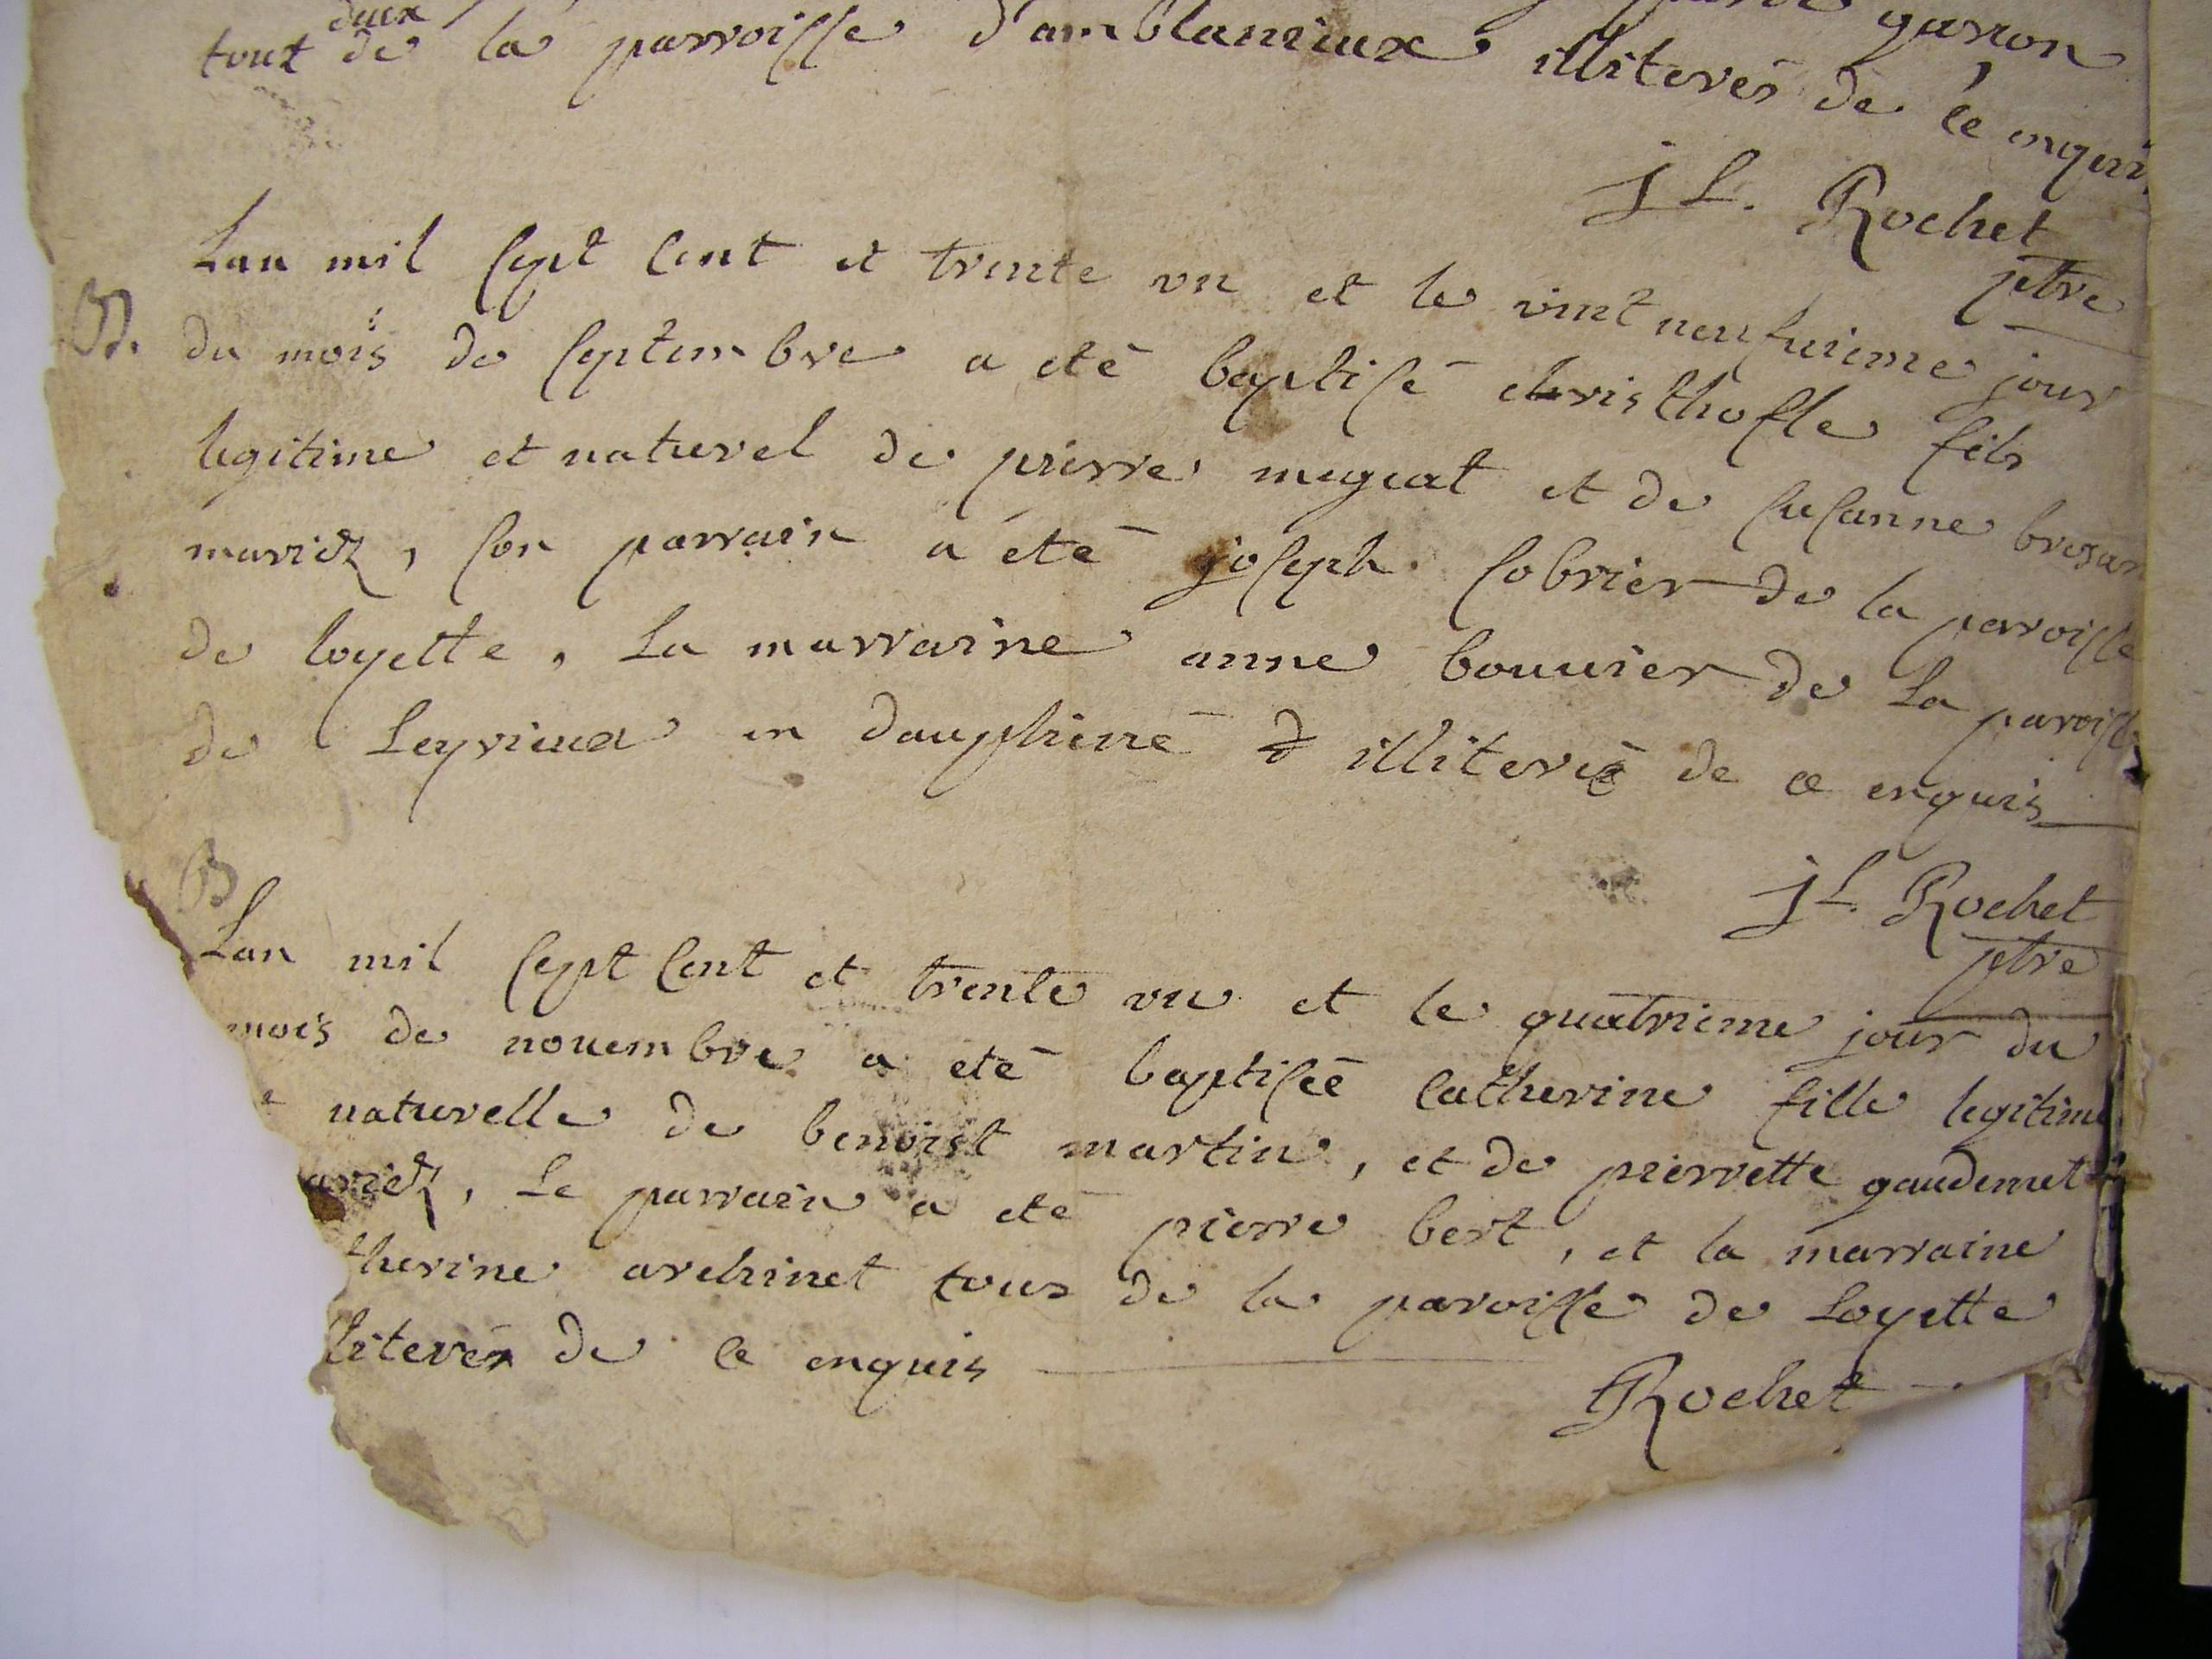 garson
deux
tout de la parroisse d'amblanieux illiterés de ce enqui
J L. Rochet
ptre
Lan mil sept cent et trente un et le vint neufuieme jour
B. du mois de septembre a eté baptisé christhofle fils
legitime et naturel de pierre mugeat et de susanne
mariez, son parrain a été joseph sobrier de la parroisse
de loyette, La marraine anne bouuier de La paroisse
de Leyrieua en dauphiné illiteré de ce enquis
J L. Rochet
ptre
B
Lan mil sept cent et trente un et le quatrieme jour du
mois de nouembre a eté baptiseé catherine fille legitime
naturelle de benoist martin, et de pierrette gaudemet
ariez, Le parrain a eté pierre bert, et la marraine
therine archinet tous de la paroisse de Loyette
literés de ce enquis
Rochet